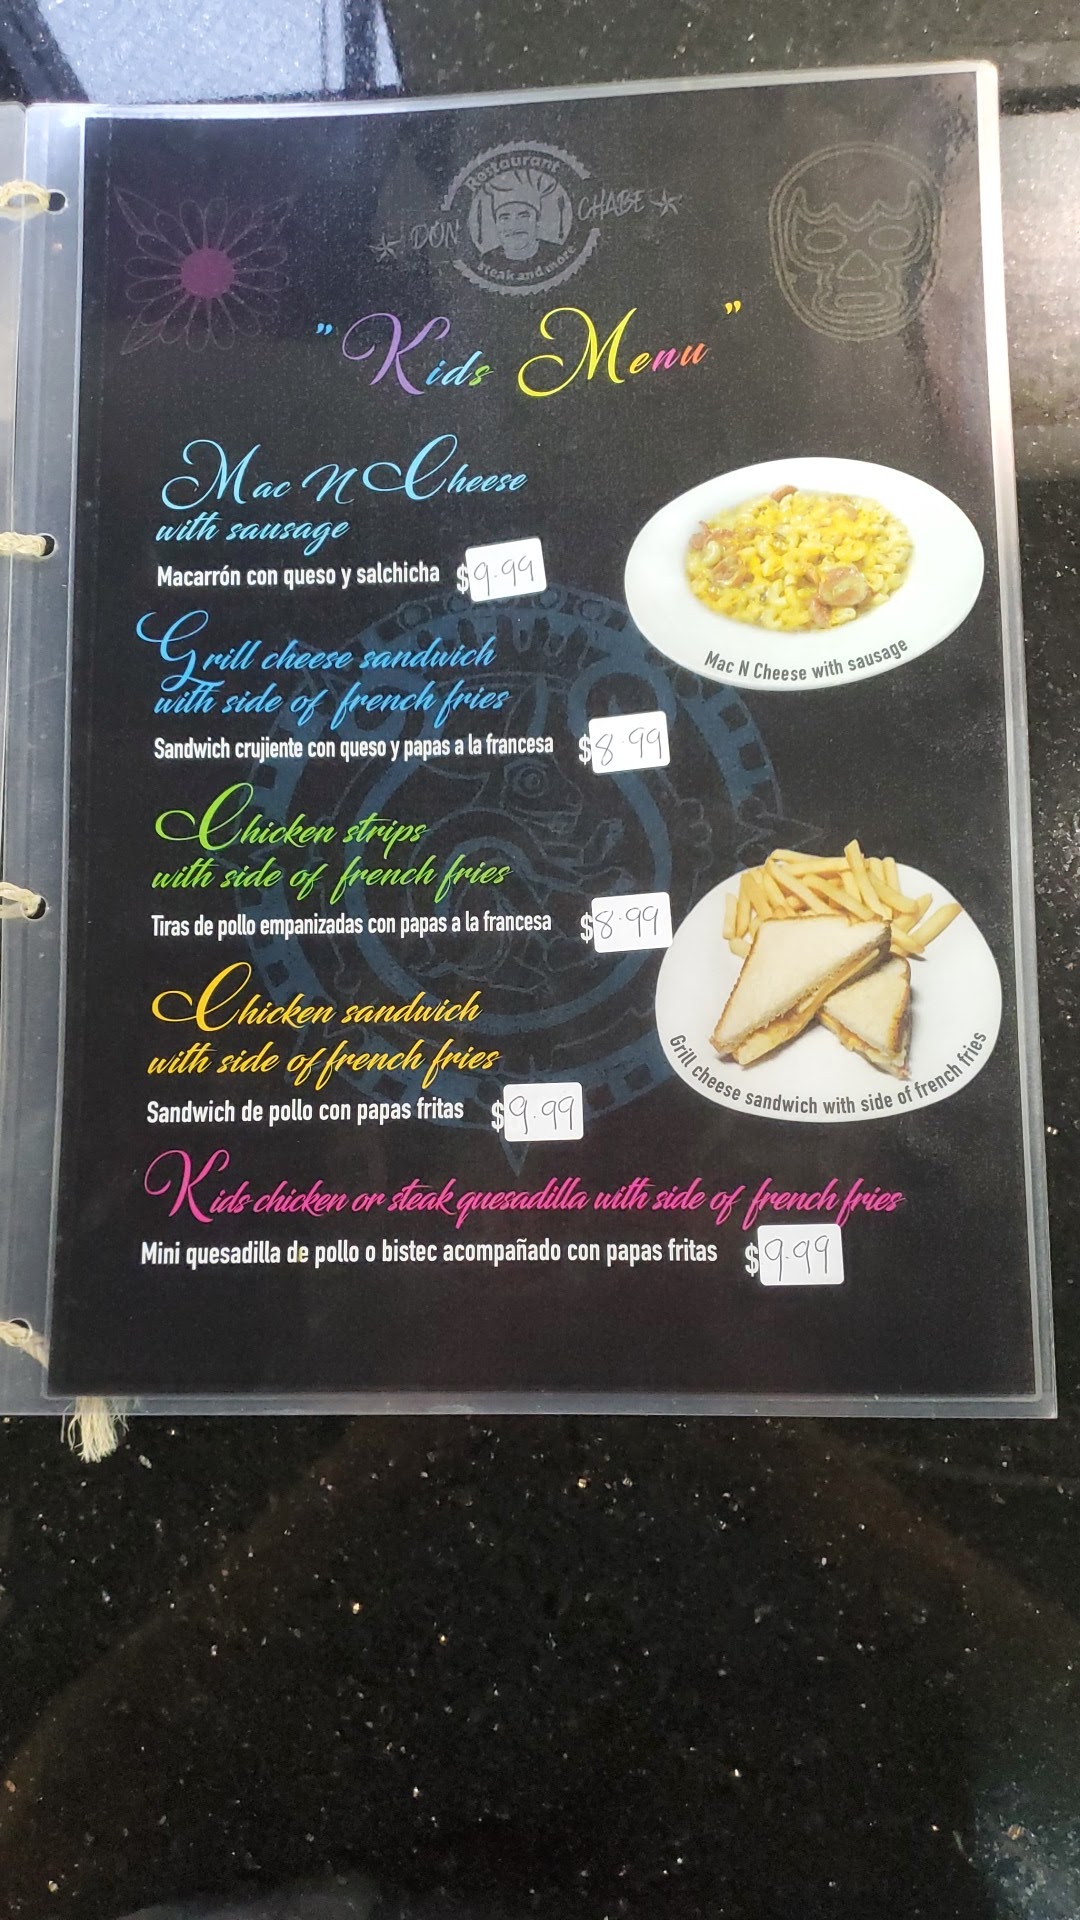 Restaurant
DON CHABE
steak and more
"Kids Menu"
Mac N Cheese
with sausage
Macarrón con queso y salchicha $9.99
Mac N Cheese with sausage
Grill cheese sandwich
with side of french fries
Sandwich crujiente con queso y papas a la francesa $8.99
Chicken strips
with side of french fries
Tiras de pollo empanizadas con papas a la francesa $8.99
Chicken sandwich
with side of french fries
Grill cheese sandwich with side of french fries
Sandwich de pollo con papas fritas $9.99
Kids chicken or steak quesadilla with side of french fries
Mini quesadilla de pollo o bistec acompañado con papas fritas $9.99